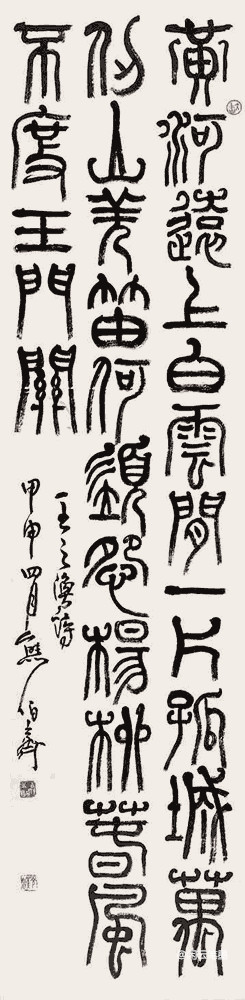 黃河遠上白雲間一片孤城萬
仞山羌笛何須怨楊柳萅風
不度玉門關
王之渙詩
甲申四月無伯壽